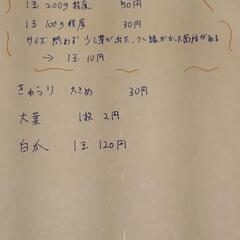 1玉 200g程度 50円
1玉 100g程度 30円
サイズ問わず 少し芽が出た、少し緑がかった箇所がある
→ 1玉 10円
きゅうり 大きめ 30円
大葉 1枚 2円
白瓜 1玉 120円